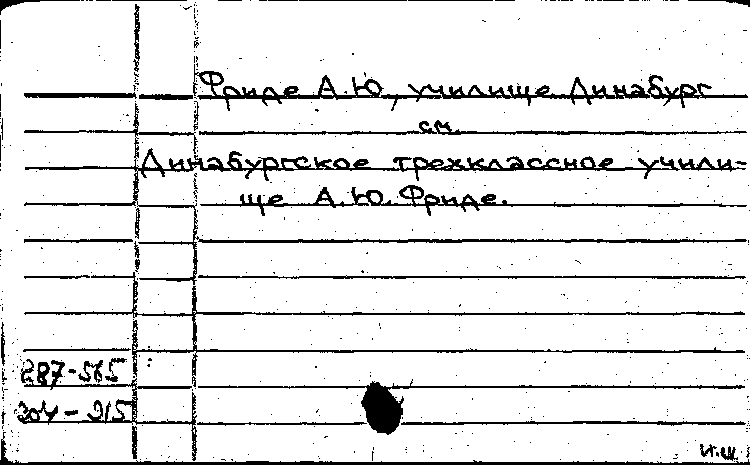 Фриде А.Ю., училище Динабург
см.
Динабургское трехклассное учили-
ще А.Ю. Фриде.
287-565
304-315
И.Ш.